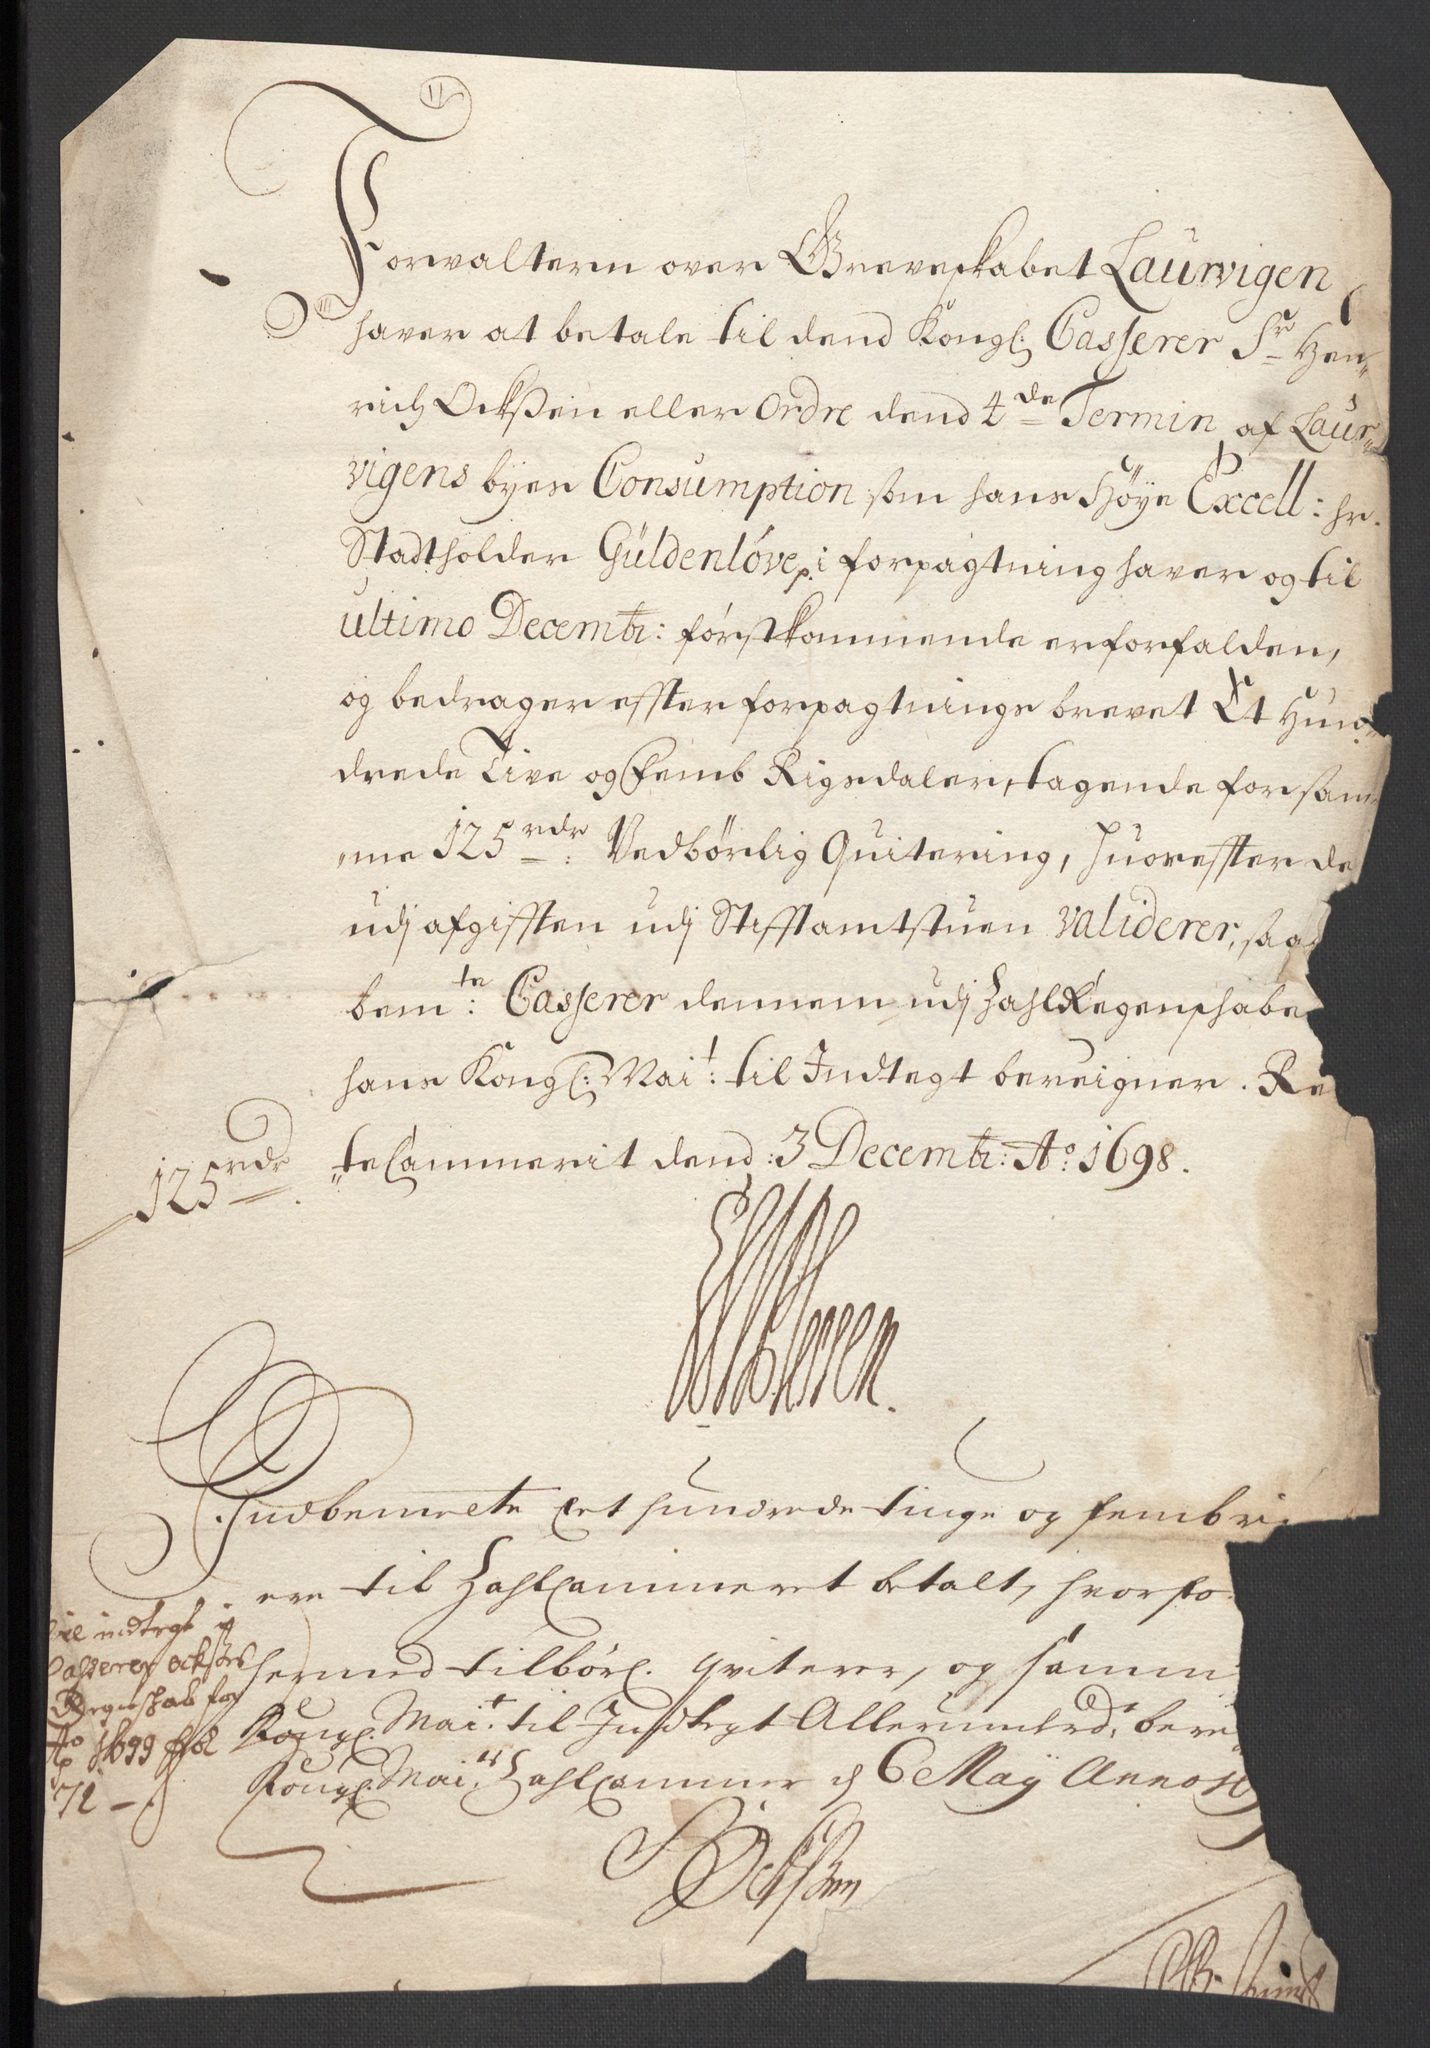 11
Forwaltern over Greveskabet Laurvigen
haver at betale til dend Kongl: Casserer Sr Hen-
rich Ockßen eller Ordre dend 4de Termin af Laur-
vigens byes Consumption som hans Høye Excell: hr.
Stadtholder Güldenlöve i forpagtning haver og til
ultimo Decembr: førstkommende er forfalden,
og bedrager effter forpagtnings brevet Et Hun-
drede Tive og Femb Rigsdaler, tagende for sam-
me 125 rdr: Vedbørlig Quitering, huoreffter de
udj afgifften udj Stifftamtstuen validerer, saa
bemte: Casserer dennem udj Zahl Regenschabe
hans Kongl: Mait: til Indtegt bereigner. Re
te Cammerit dend: 3 Decembr: Ao: 1698.
125 rdr
Indbemelte Eet hundrede tiuge og femb ri
ere til Zahl Cammeret betalt, hvorfo
hermed tilbørl. qviterer, og samm
Kongl. Mait. til Indtegt Allerunderd. bere
Kongl. Maits. Zahl Cammer d 6 Maÿ Anno
til indtegt i
Casserer Ockßens
Regnschab for
Ao 1699 fol
72 -
Ockßen